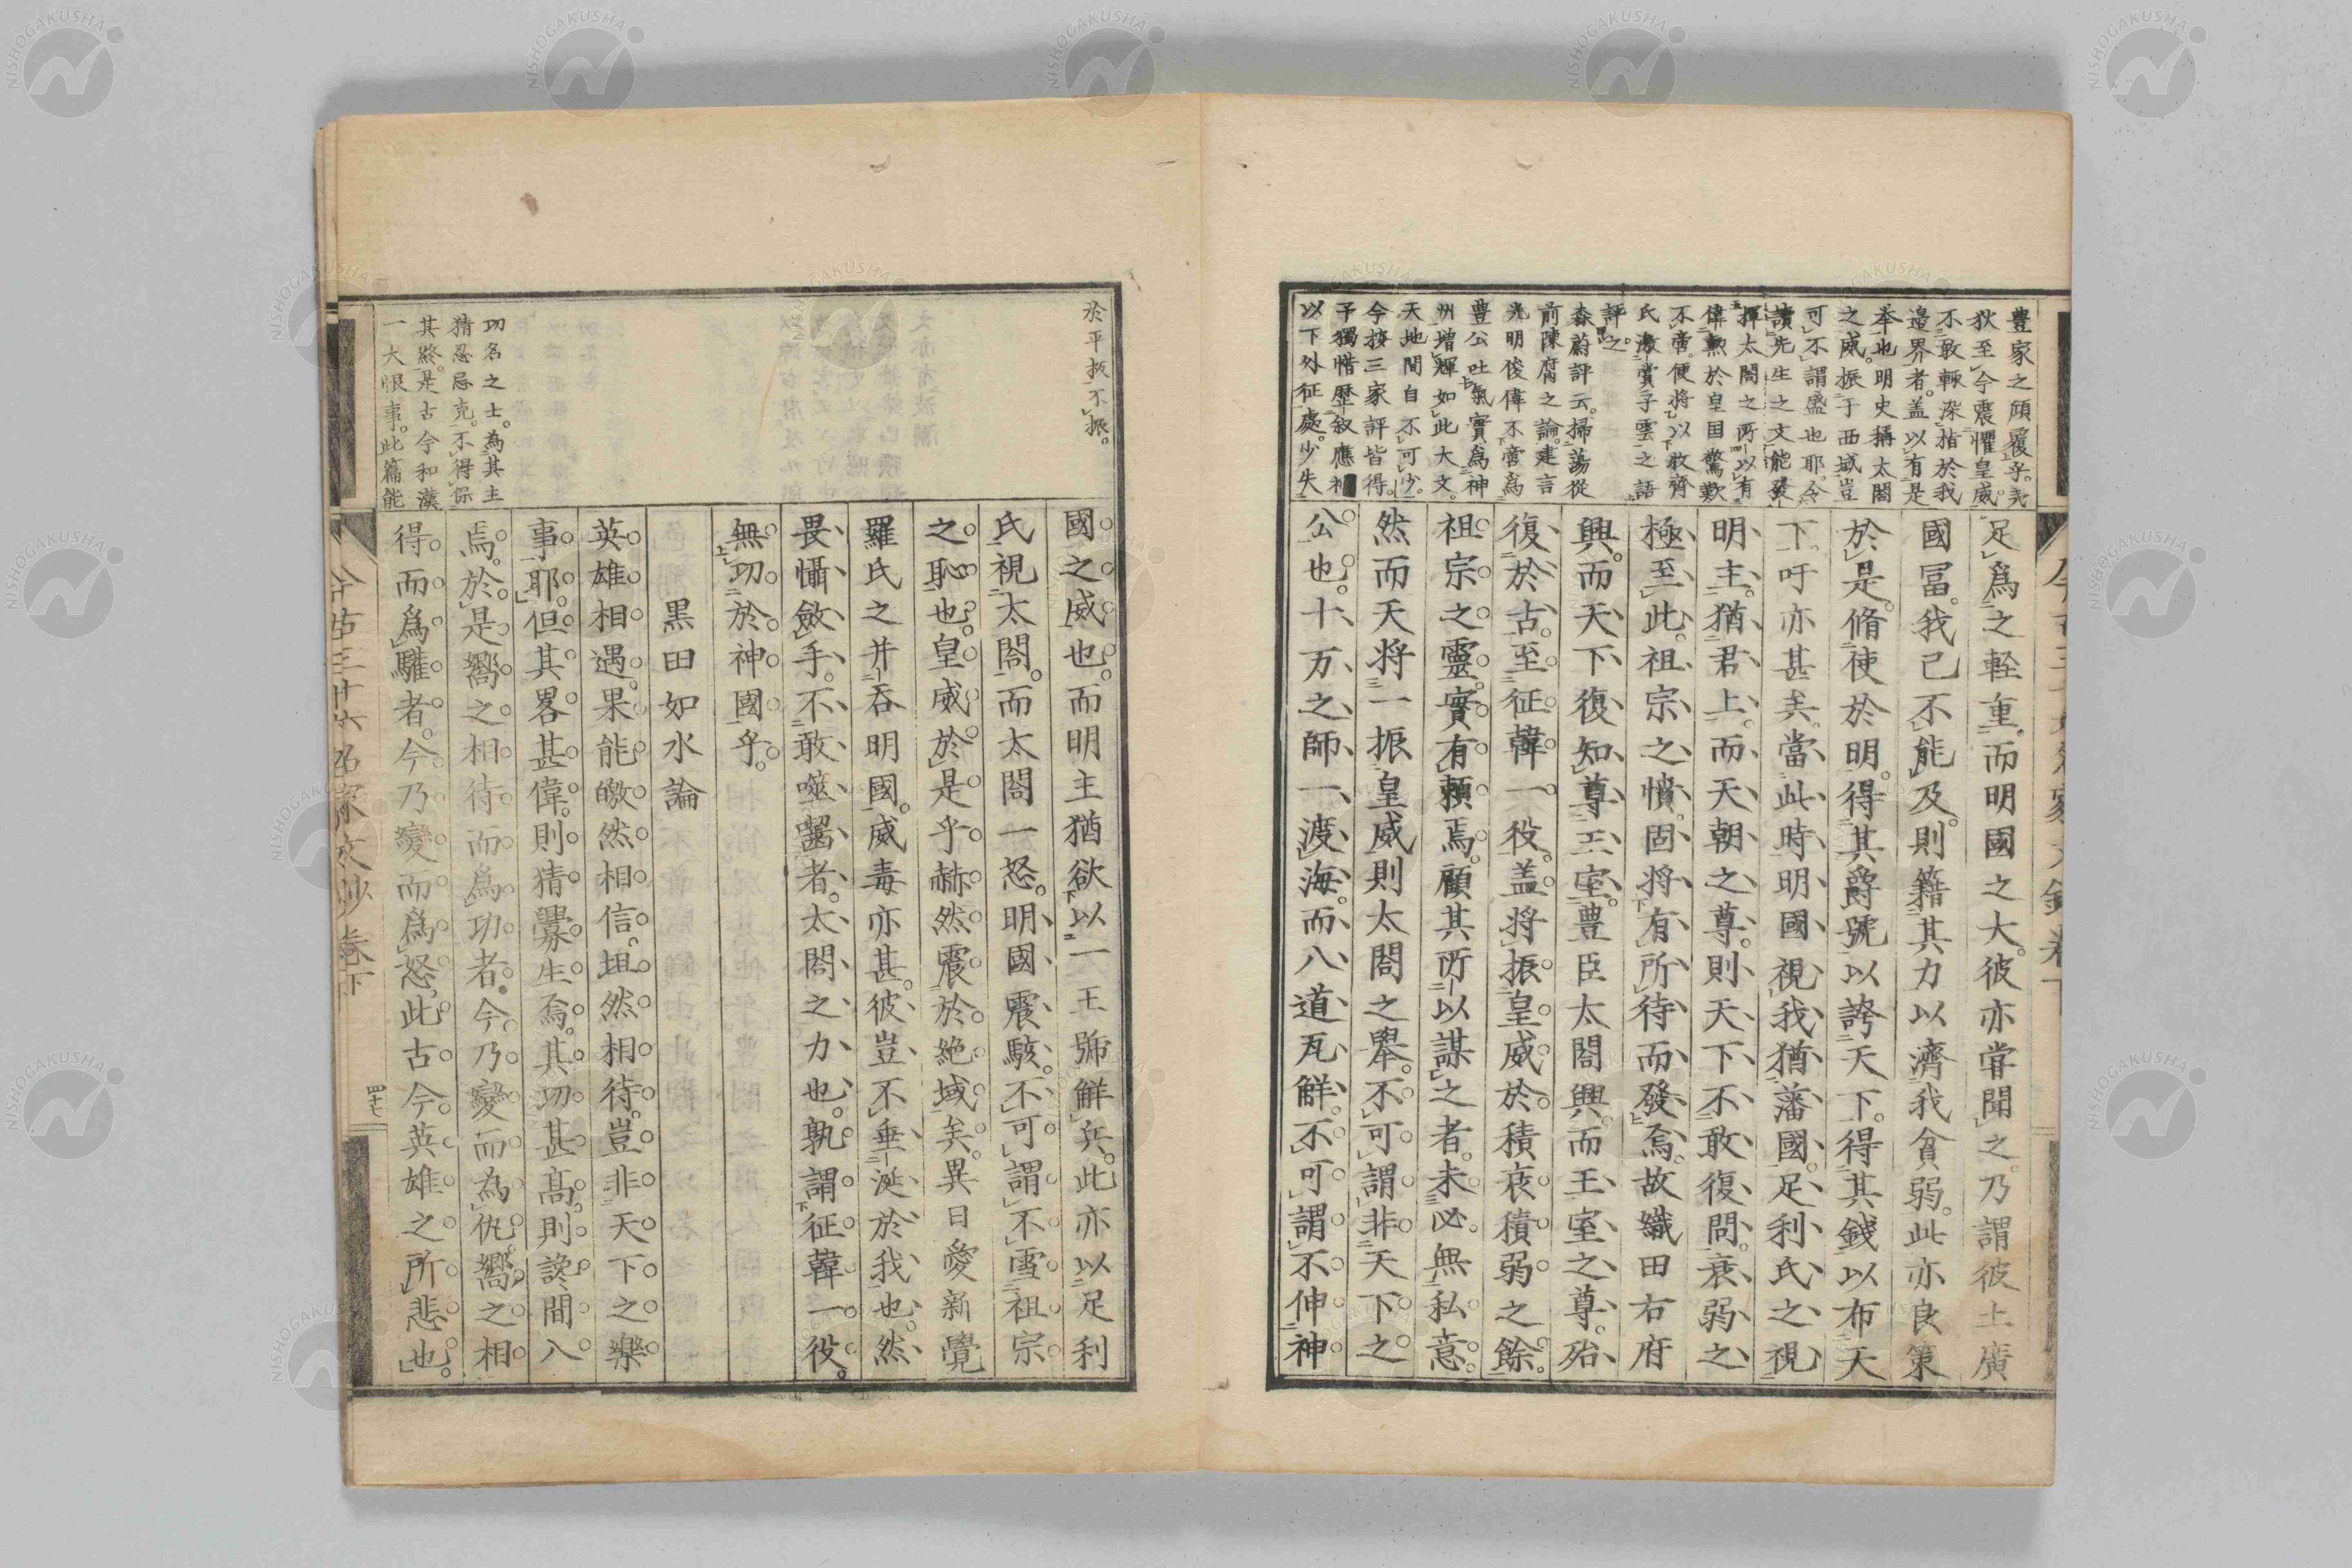 豊家之頎覆乎。夷
狄至今震懼皇威。
不敢輙深指於我
邉界者。盖以有是
奉也。明史稱太閤
之威。振于西域豈
可不謂盛也耶。今
讀先生之文能發
揮太閤之所以有
偉勲於皇国驚歎
不啻。便將以敎齊
氏激賞子雲之語
評之。
森蔚評云。掃蕩從
前陳腐之論。建言
光明俊偉不啻爲
豊公吐氣實爲神
州增輝如此大文。
天地間自不可少。
今按三家評皆得。
予獨惜歴叙應神
以下外征處。少失
足爲之輊重。而明國之大。彼亦甞聞之。乃謂彼土廣
國冨。我己不能及。則籍其力以濟我貧弱。此亦良策
於是。脩使於明。得其爵號以誇天下。得其錢以布天
下。吁亦甚矣。當此時明國視我猶藩國。足利氏之視
明主。猶君上。而天朝之尊。則天下不敢復問。衰弱之
極至此。祖宗之憤。固將有所待而發焉。故織田右府
興。而天下復知尊王室。豊臣太閤興。而王室之尊。殆
復於古。至征韓一役。盖將振皇威於積衰積弱之餘。
祖宗之靈。實有頼焉。顧其所以謀之者。未必無私意。
然而天將一振皇威則太閤之擧。不可謂非天下之
公也。十万之師一渡海。而八道瓦鮮。不可謂不伸神
於平扳不振。
國之威也。而明主猶欲以一王號鮮兵。此亦以足利
氏視太閤。而太閤一怒。明國震駭。不可謂不雪祖宗
之恥也。皇威於是乎赫然震於絶域矣。異日愛新覺
羅氏之并吞明國。威毒亦甚。彼豈不垂涎於我也。然
畏懾斂手。不敢噬齧者。太閤之力也。孰謂征韓一役。
無功於神國乎。
黒田如水論
英雄相遇。果能皦然相信。坦然相待。豈非天下之樂
事耶。但其畧甚偉。則猜釁生焉。其功甚髙。則讒間入
焉。於是嚮之相待而爲功者。今乃變而為仇。嚮之相
得而爲驩者。今乃變而爲怒。此古今英雄之所悲也。
功名之士。為其主
猜忍忌克。不得保
其終。是古今和漢
一大恨事。此篇能
今古三十六名家文抄卷下
四十七